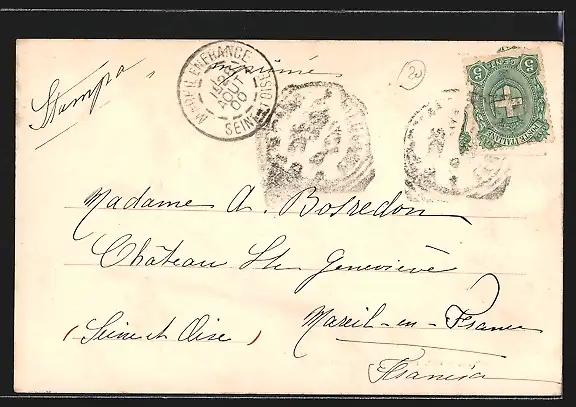 Stampa
imprimé
20
MAREIL EN FRANCE
AOUT
00
SEINE ET OISE
5 CENT 5
POSTE ITALIANE
Madame A. Bosredon
Château Ste Geneviève
Mareil-en-France
(Seine et Oise)
Francia